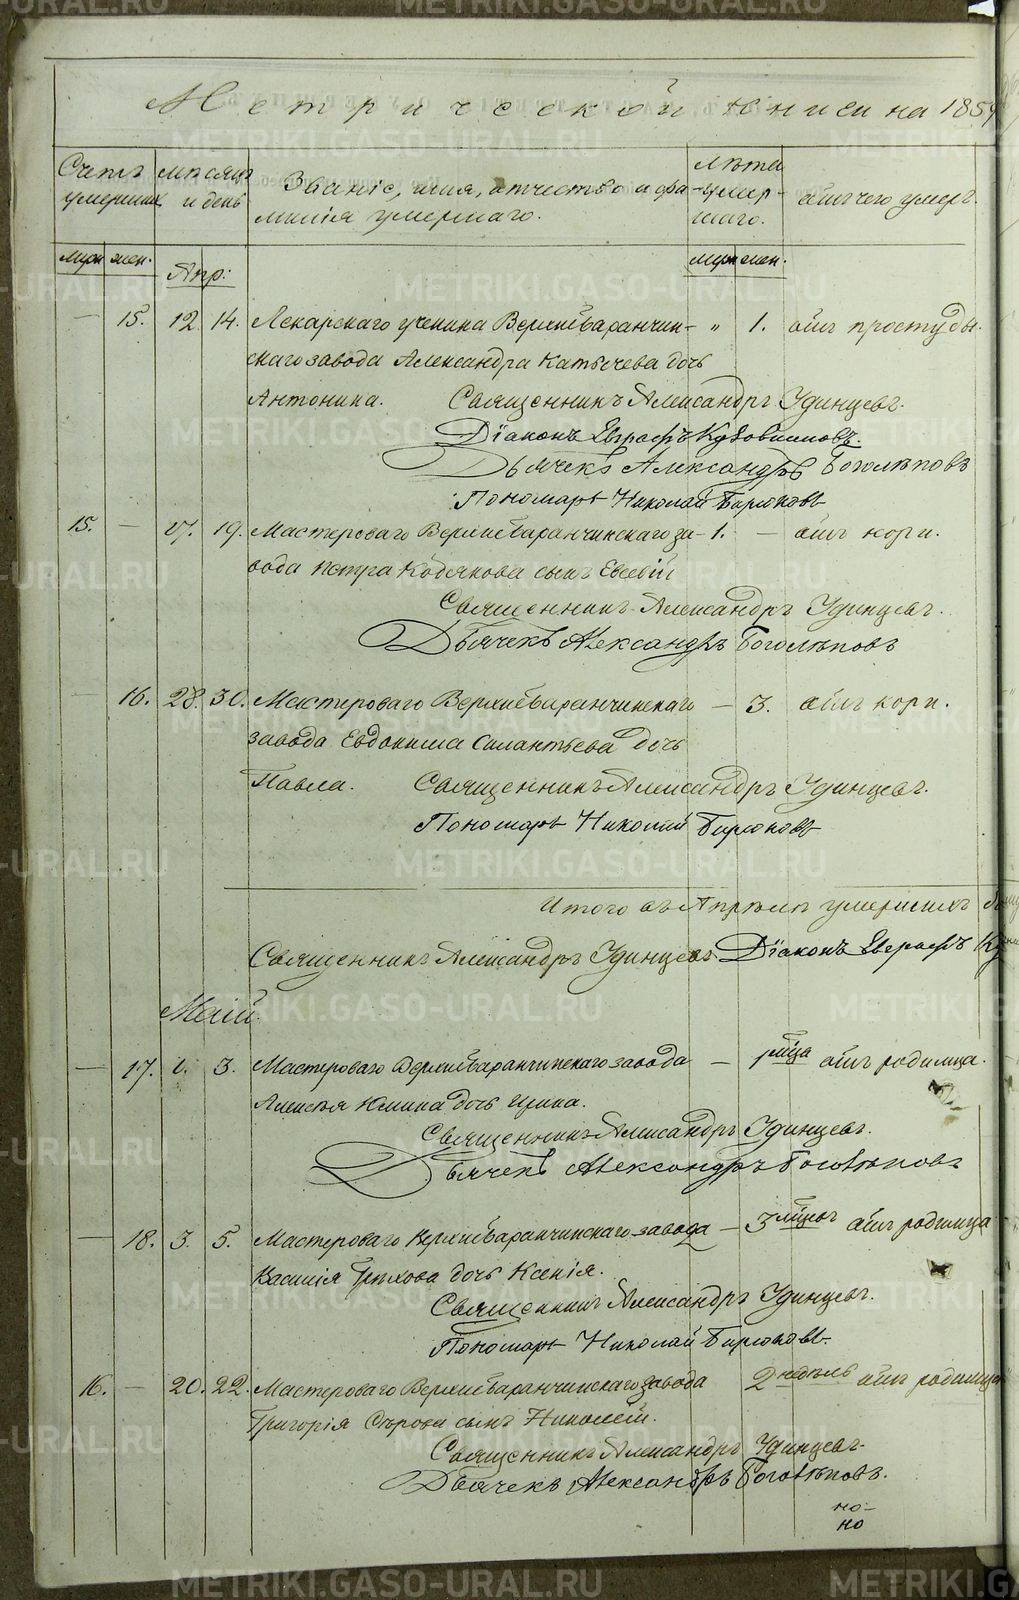 Метрической книги на 185
Счетъ умершихъ
Мѣсяцъ и день
Званіе, имя, отчество и фамилія умершаго.
Лѣта умершаго.
отъ чего умеръ.
муж. жен. Апр: муж. жен.
— 15. 12. 14. Лекарскаго ученика Верхнебаранчин- „ 1. отъ простуды.
скаго завода Александра Катычева дочь
Антонина. Священникъ Александръ Удинцевъ.
Діаконъ Евграфъ
Дьячекъ Александръ Боголѣповъ
Пономарь Николай Бирюковъ
15. — 17. 19. Мастероваго Верхнебаранчинскаго за- 1. — отъ кори.
вода Петра Кодякова сынъ Евсевій
Священникъ Александръ Удинцевъ.
Дьячекъ Александръ Боголѣповъ
— 16. 28. 30. Мастероваго Верхнебаранчинскаго — 3. отъ кори.
завода Евдокима Силантьева дочь
Павла. Священникъ Александръ Удинцевъ.
Пономарь Николай Бирюковъ
Итого въ Апрѣлѣ умершихъ
Священникъ Александръ Удинцевъ Діаконъ Евграфъ
Маій.
— 17. 1. 3. Мастероваго Верхнебаранчинскаго завода — отъ родимца.
Алексѣя дочь Ирина.
Священникъ Александръ Удинцевъ.
Дьячекъ Александръ Боголѣповъ
— 18. 3. 5. Мастероваго Верхнебаранчинскаго завода — 3 мѣсяц отъ родимца
Василія дочь Ксенія.
Священникъ Александръ Удинцевъ.
Пономарь Николай Бирюковъ.
16. — 20. 22. Мастероваго Верхнебаранчинскаго завода 2 недѣль отъ родимца
Григорія Сѣрова сынъ Николай.
Священникъ Александръ Удинцевъ.
Дьячекъ Александръ Боголѣповъ.
но-
но
METRIKI.GASO-URAL.RU